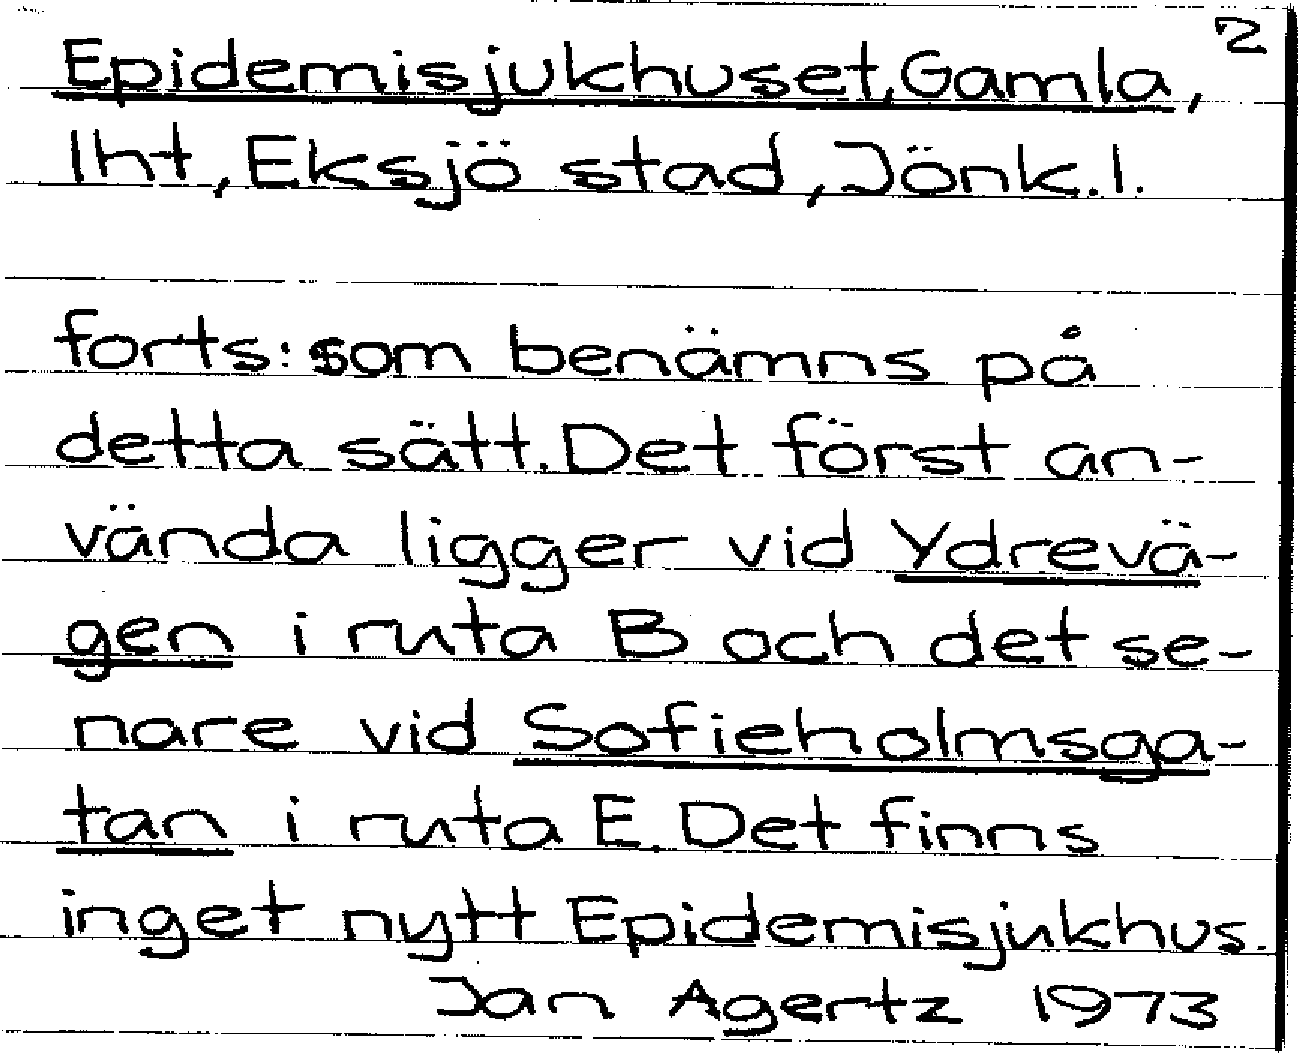 2
Epidemisjukhuset, Gamla,
lht, Eksjö stad, Jönk.l.
forts: som benämns på
detta sätt. Det först an-
vända ligger vid Ydrevä-
gen i ruta B och det se-
nare vid Sofieholmsga-
tan i ruta E. Det finns
inget nytt Epidemisjukhus.
Jan Agertz 1973